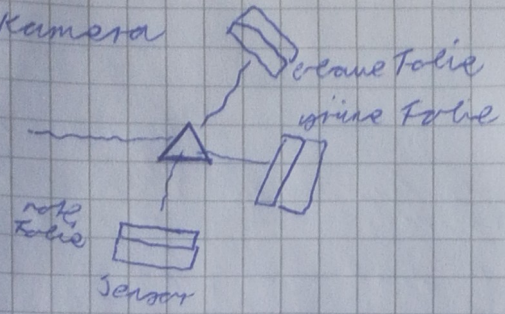 Kamera
blaue Folie
grüne Folie
rote
Folie
Sensor